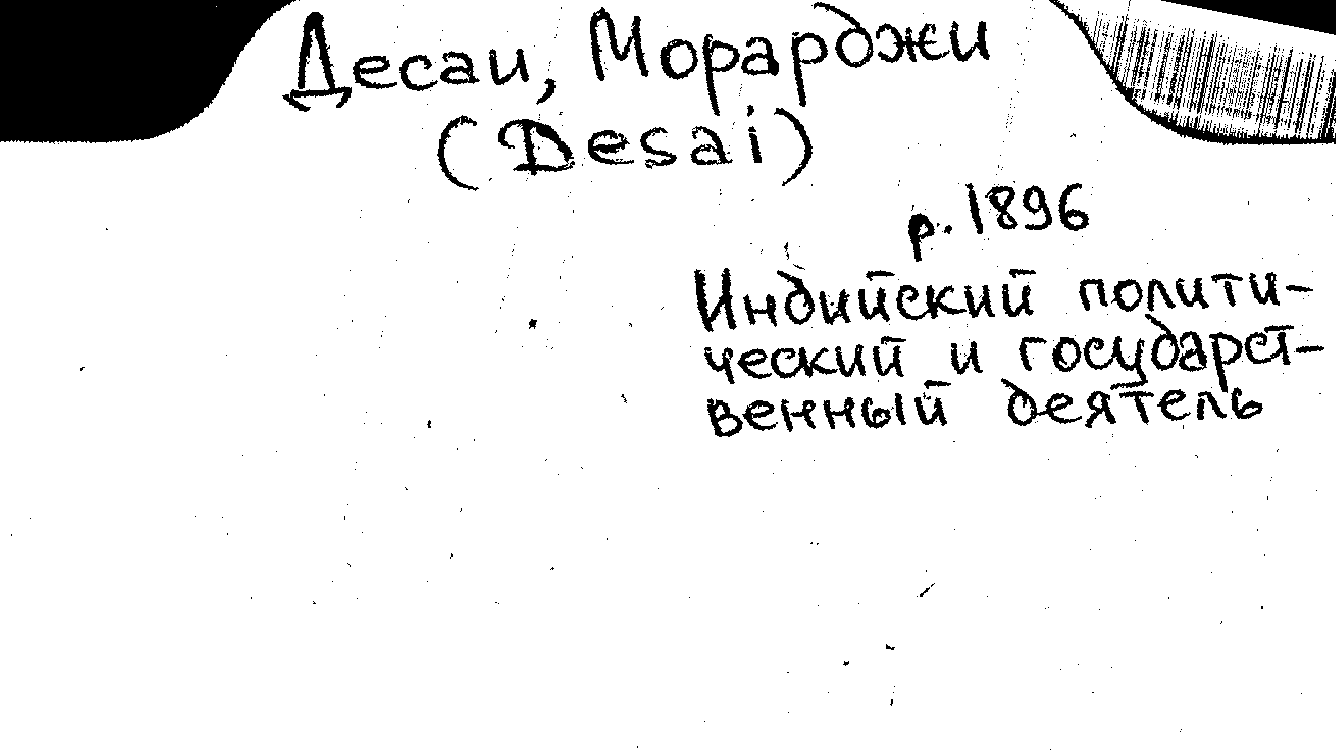 Десаи, Морарджи
(Desai)
р. 1896
Индийский полити-
ческий и государст-
венный деятель